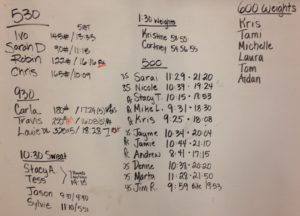 530
5:07
Ivo 145# / 13:35
Sarah D 90# / 11:18
Robin 122# / 16:16
Chris 165# / 10:09
930
Carla
Travis
Lauie
10:30 Sweat
Stacy A.
Tess
Jason
Sylvie
1:30 Weights
Kristine 53 55
Cortney 54 56 55
500
25 Sarai 11:29 · 21:20
25 Nicole 10:39 · 19:24
Stacy T. 10:15 · 19:53
Mike L. 9:31 · 18:30
Kris 9:25 · 18:08
25 Jayme 10:34 · 20:04
Jamie 10:44 · 21:10
Andrew 8:41 · 17:15
25 Denne 10:38 · 20:20
25 Marta 11:28 · 21:50
45 Jim R. 9:59 19:53
600 Weights
Kris
Tami
Michelle
Laura
Tom
Aidan